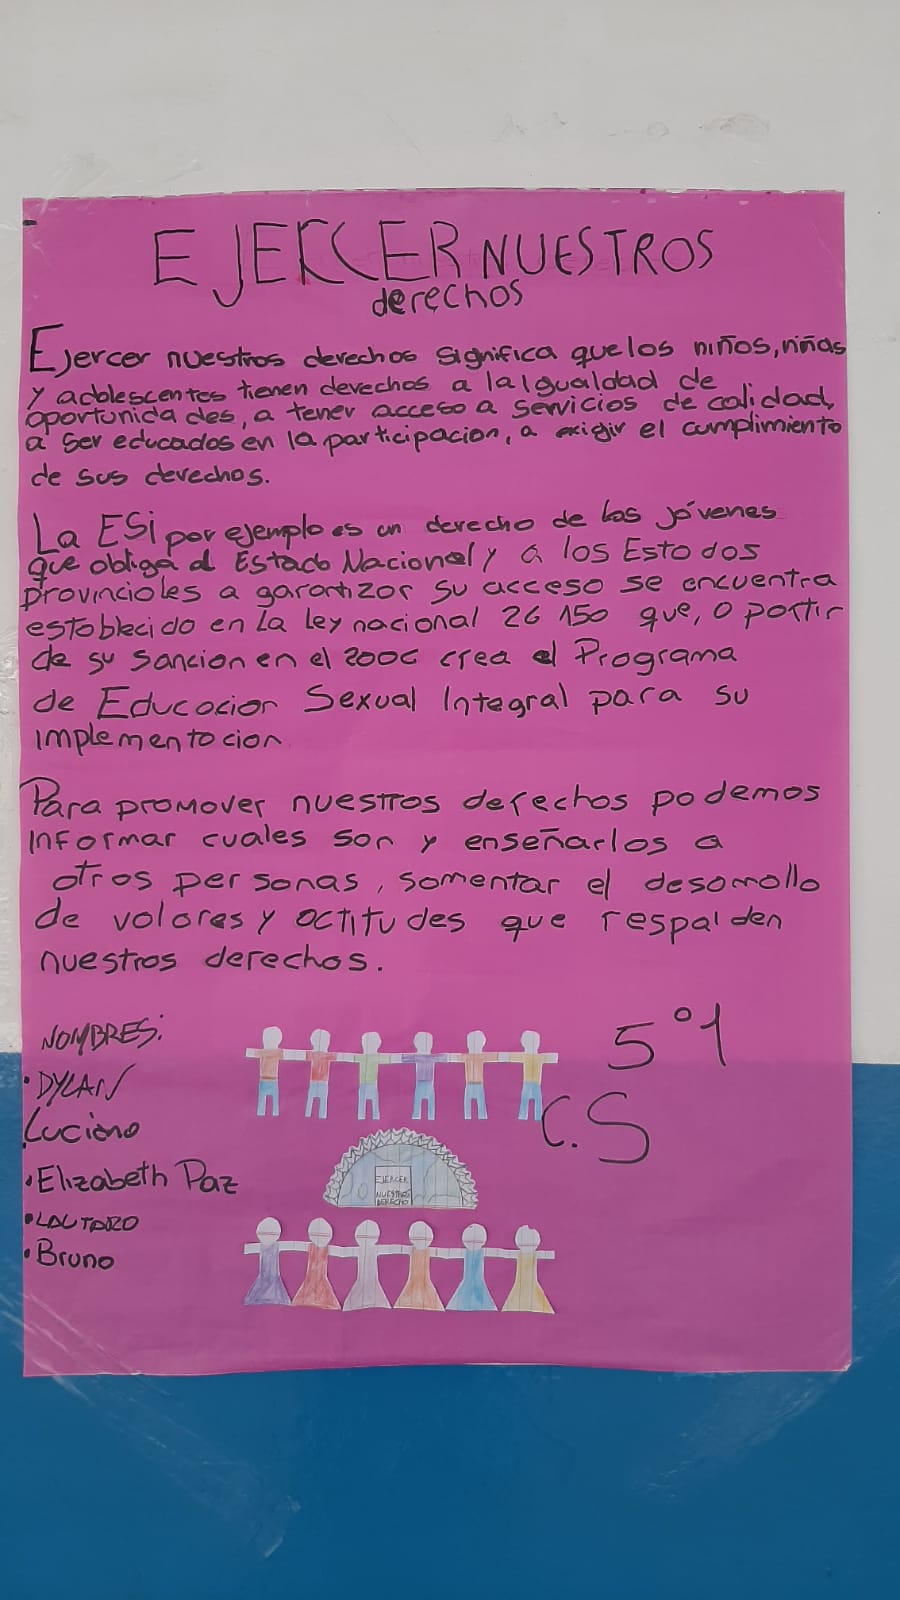 EJERCER NUESTROS
derechos
Ejercer nuestros derechos significa que los niños, niñas
y adolescentes tienen derechos a la Igualdad de
oportunidades, a tener acceso a servicios de calidad,
a ser educados en la participacion, a exigir el cumplimiento
de sus derechos.
La ESi por ejemplo es un derecho de los jóvenes
que obliga al Estado Nacional y a los Estados
provinciales a garantizar su acceso se encuentra
establecido en la Ley nacional 26 150 que, a partir
de su sancion en el 2006 crea el Programa
de Educacion Sexual Integral para su
implementacion
Para promover nuestros derechos podemos
informar cuales son y enseñarlos a
otros personas, somentar el desarrollo
de valores y actitudes que respalden
nuestros derechos.
NOMBRES:
•DYLAN
Luciano
•Elizabeth Paz
•LAUTARO
•Bruno
5°1
C.S
EJERCER
NUESTROS
DERECHO